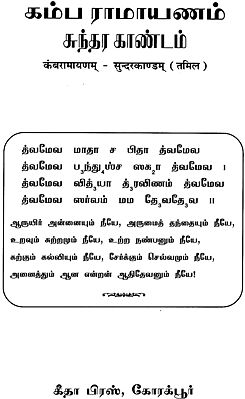 கம்ப ராமாயணம்
சுந்தர காண்டம்
कंबरामायणम् - सुन्दरकाण्डम् (तमिल)
த்வமேவ மாதா ச பிதா த்வமேவ
த்வமேவ பந்து₄ஸ்ச ஸகா₂ த்வமேவ ।
த்வமேவ வித்₃யா த்₃ரவிணம் த்வமேவ
த்வமேவ ஸர்வம் மம தே₃வதே₃வ ॥
ஆருயிர் அன்னையும் நீயே, அருமைத் தந்தையும் நீயே,
உறவும் சுற்றமும் நீயே, உற்ற நண்பனும் நீயே,
கற்கும் கல்வியும் நீயே, சேர்க்கும் செல்வமும் நீயே,
அனைத்தும் ஆன என்றன் ஆதிதேவனும் நீயே!
கீதா பிரஸ், கோரக்பூர்